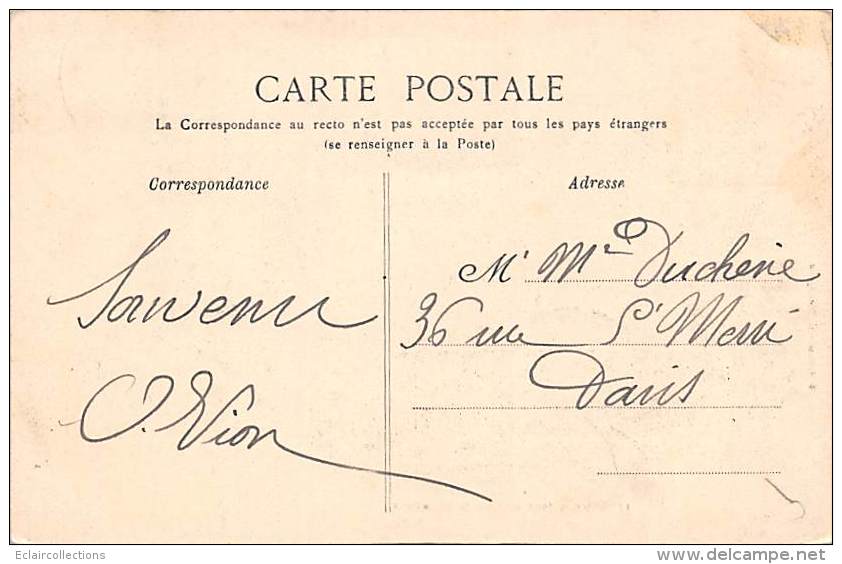 CARTE POSTALE
La Correspondance au recto n'est pas acceptée par tous les pays étrangers
(se renseigner à la Poste)
Correspondance
Adresse
Souvenir
O. Vion
Mr Mme Duchêne
36 rue St Merri
Paris
Eclaircollections
www.delcampe.net